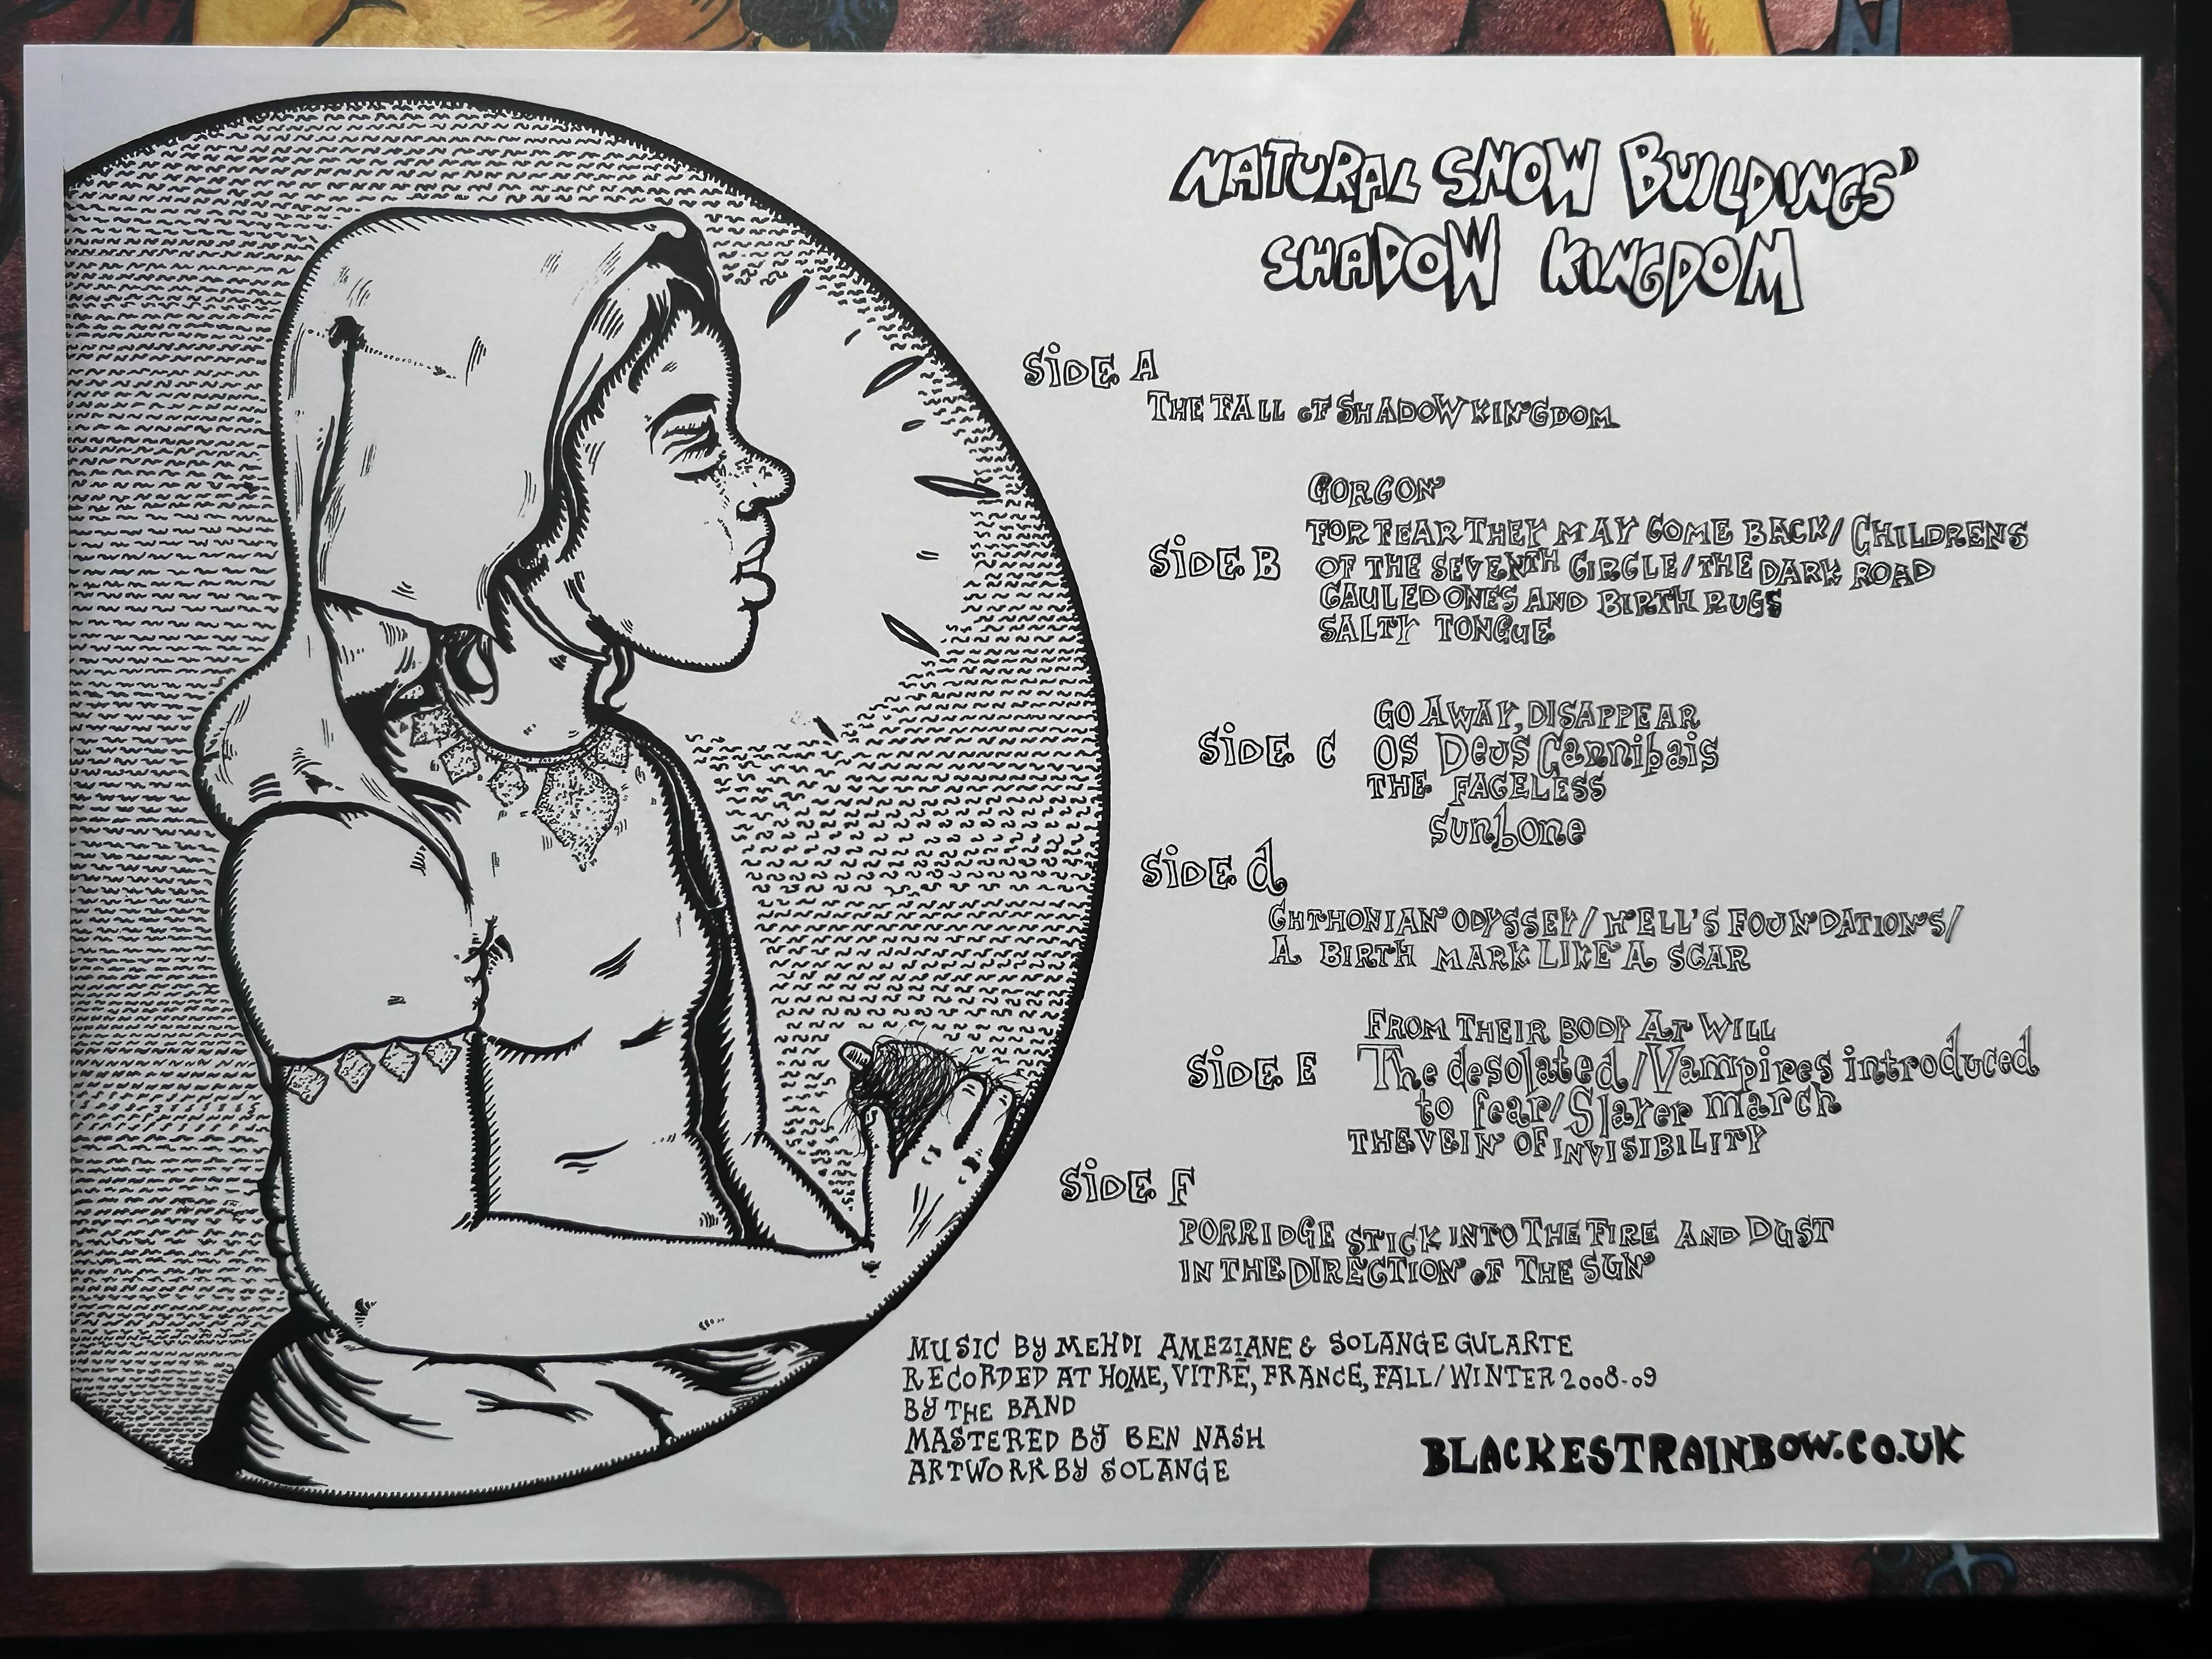 NATURAL SNOW BUILDINGS'
SHADOW KINGDOM
SiDE A
THE FALL OF SHADOW KINGDOM
GORGON
SiDE B
FOR FEAR THEY MAY COME BACK/ CHILDRENS
OF THE SEVENTH CIRCLE/THE DARK ROAD
CAULED ONES AND BIRTH RUGS
SALTY TONGUE
GO AWAY, DISAPPEAR
SiDE C
OS Deus Cannibais
THE FACELESS
sunbone
SiDE d
CHTHONIAN ODYSSEY/ HELL'S FOUNDATIONS/
A BIRTH MARK LIKE A SCAR
FROM THEIR BODY AT WILL
SiDE E
The desolated /Vampires introduced
to fear/Slayer march
THE VEIN OF INVISIBILITY
SiDE F
PORRIDGE STICK INTO THE FIRE AND DUST
IN THE DIRECTION OF THE SUN
MUSIC BY MEHDI AMEZIANE & SOLANGE GULARTE
RECORDED AT HOME, VITRÉ, FRANCE, FALL/WINTER 2008-09
BY THE BAND
MASTERED BY BEN NASH
ARTWORK BY SOLANGE
BLACKESTRAINBOW.CO.UK